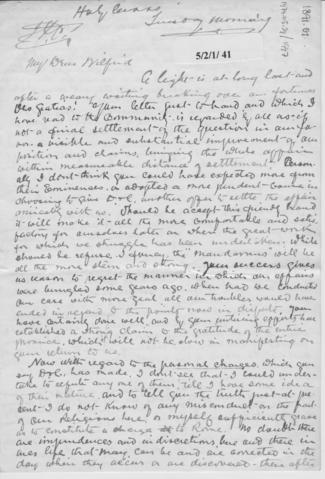 Holy Cross
Tuesday Morning
5/2/1/41
My Dear Wilfrid
A light is at long last and
after a weary waiting breaking over our fortunes
Deo Gratias! Your letter just to hand and which I
have read to the Community is regarded by all as if
not a final settlement of the question in our fa-
vor a visible and substantial improvement of our
position and claims, bringing the whole
within measurable distance of settlement. Person-
ally I don't think you could have expected more from
their Eminences, or adopted a more prudent course in
choosing to give another offer to settle the affair
amicably with us. Should he accept this friendly hand
it will make it all the more comfortable and satis-
factory for ourselves later on when the great work
for which we struggle has been undertaken. While
should he refuse, I fancy, the Mandamus will be
all the more stern and strong. Your success gives
us reason to regret the manner in which our affairs
were bungled some years ago. When had we conducted
our case with more zeal all our troubles would have
ended in regard to the point now in dispute. You
have certainly done well, and by your untiring efforts have
established a strong claim to the gratitude of the entire
province, which will not be slow in manifesting on
your return to us.
Now with regard to the personal charges which you
say has made, I don't see that I could under-
take to refute any one of them, till I have some idea
of their nature, and to tell you the truth just at pre-
sent I do not know of any misconduct on the part
of our religious here, or myself sufficiently grave
as to constitute a charge to Rome. No doubt there
are imprudences and indiscretions, here and there in
ones life that may, can be and are arrested in the
day when they occur or are discovered. there after